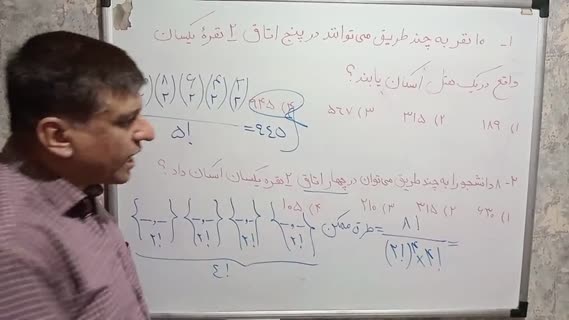 ۱- ۱۰ نفر به چند طریق می‌توانند در پنج اتاق ۲ نفرهٔ یکسان
واقع در یک هتل اسکان یابند؟
۱) ۱۸۹ ۲) ۳۱۵ ۳) ۵۶۷ ۴) ۹۴۵
(۸ ۲) (۶ ۲) (۴ ۲) (۲ ۲) / ۵! = ۹۴۵
۲- ۸ دانشجو را به چند طریق می‌توان در چهار اتاق ۲ نفره یکسان اسکان داد؟
۱) ۶۳۰ ۲) ۳۱۵ ۳) ۲۱۰ ۴) ۱۰۵
{ـ,ـ} {ـ,ـ} {ـ,ـ} {ـ,ـ} طرق ممکن = ۸! / (۲!)^۴ × ۴! =
۲! ۲! ۲! ۲!
۴!